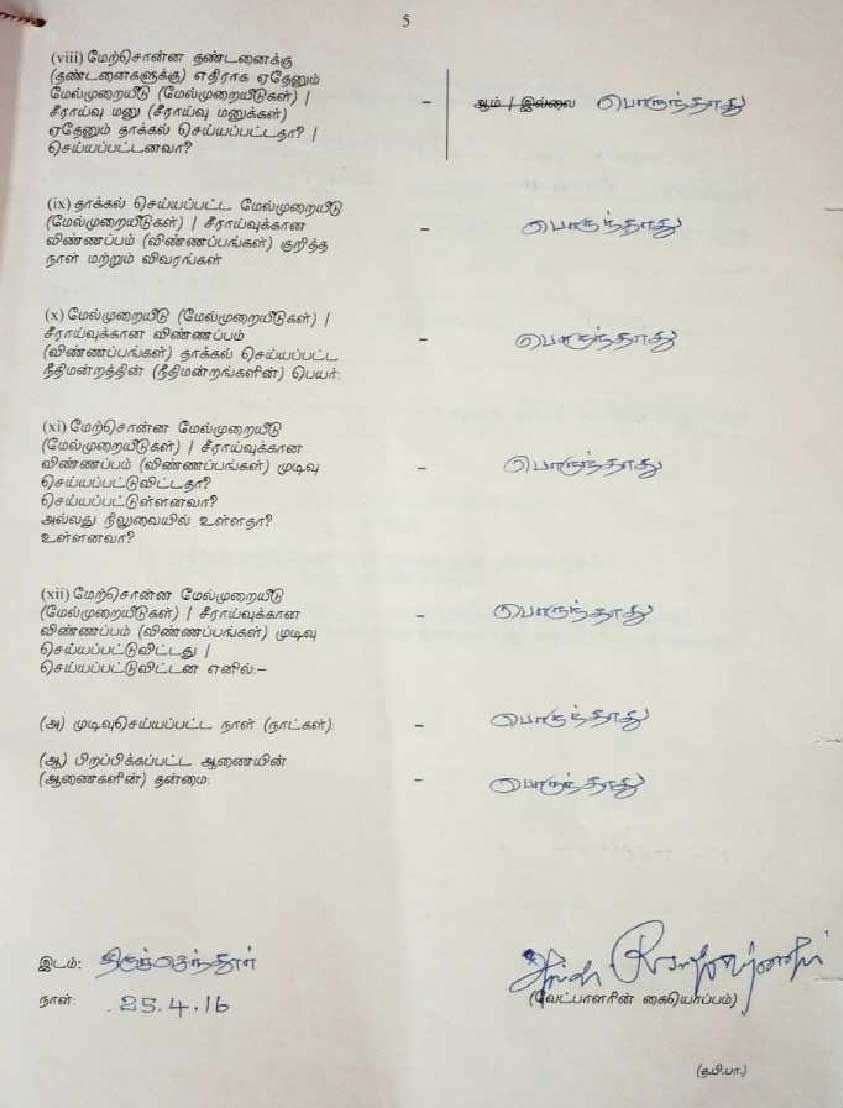 5
(viii) மேற்சொன்ன தண்டனைக்கு
(தண்டனைகளுக்கு) எதிராக ஏதேனும்
மேல்முறையீடு (மேல்முறையீடுகள்) |
சீராய்வு மனு (சீராய்வு மனுக்கள்)
ஏதேனும் தாக்கல் செய்யப்பட்டதா? |
செய்யப்பட்டனவா?
– ஆம் | இல்லை பொருந்தாது
(ix) தாக்கல் செய்யப்பட்ட மேல்முறையீடு
(மேல்முறையீடுகள்) | சீராய்வுக்கான
விண்ணப்பம் (விண்ணப்பங்கள்) குறித்த
நாள் மற்றும் விவரங்கள்
– பொருந்தாது
(x) மேல்முறையீடு (மேல்முறையீடுகள்) |
சீராய்வுக்கான விண்ணப்பம்
(விண்ணப்பங்கள்) தாக்கல் செய்யப்பட்ட
நீதிமன்றத்தின் (நீதிமன்றங்களின்) பெயர்:
– பொருந்தாது
(xi) மேற்சொன்ன மேல்முறையீடு
(மேல்முறையீடுகள்) | சீராய்வுக்கான
விண்ணப்பம் (விண்ணப்பங்கள்) முடிவு
செய்யப்பட்டுவிட்டதா?
செய்யப்பட்டுள்ளனவா?
அல்லது நிலுவையில் உள்ளதா?
உள்ளனவா?
– பொருந்தாது
(xii) மேற்சொன்ன மேல்முறையீடு
(மேல்முறையீடுகள்) | சீராய்வுக்கான
விண்ணப்பம் (விண்ணப்பங்கள்) முடிவு
செய்யப்பட்டுவிட்டது |
செய்யப்பட்டுவிட்டன எனில்:–
– பொருந்தாது
(அ) முடிவுசெய்யப்பட்ட நாள் (நாட்கள்): – பொருந்தாது
(ஆ) பிறப்பிக்கப்பட்ட ஆணையின்
(ஆணைகளின்) தன்மை: – பொருந்தாது
இடம்: திருச்செந்தூர்
நாள்: 25.4.16
(வேட்பாளரின் கையொப்பம்)
(த.பி.பா.)